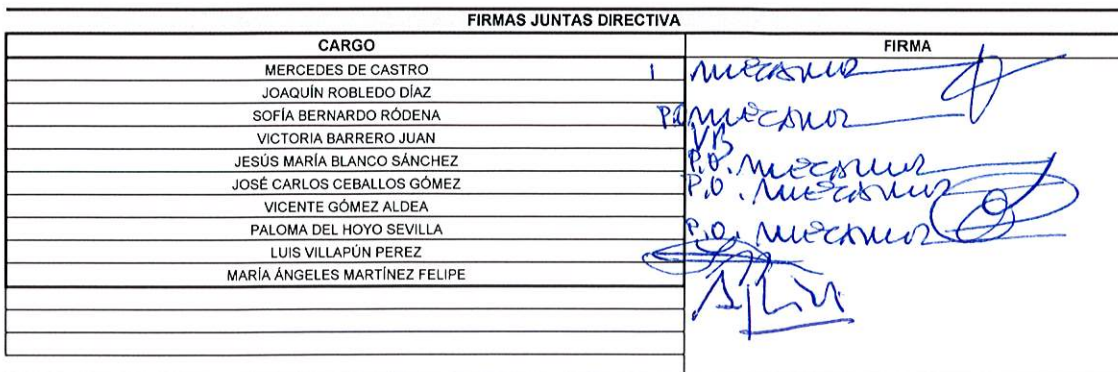 FIRMAS JUNTAS DIRECTIVA
CARGO FIRMA
MERCEDES DE CASTRO
JOAQUÍN ROBLEDO DÍAZ
SOFÍA BERNARDO RÓDENA
VICTORIA BARRERO JUAN VB
JESÚS MARÍA BLANCO SÁNCHEZ P.O.
JOSÉ CARLOS CEBALLOS GÓMEZ P.O.
VICENTE GÓMEZ ALDEA
PALOMA DEL HOYO SEVILLA P.O.
LUIS VILLAPÚN PEREZ
MARÍA ÁNGELES MARTÍNEZ FELIPE